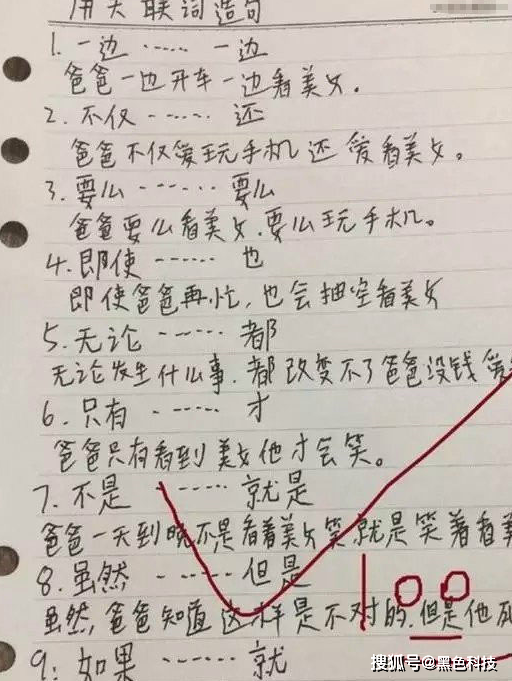 用关联词造句
1. 一边 …… 一边
爸爸一边开车一边看美女。
2. 不仅 …… 还
爸爸不仅爱玩手机还爱看美女。
3. 要么 …… 要么
爸爸要么看美女.要么玩手机。
4. 即使 …… 也
即使爸爸再忙,也会抽空看美女
5. 无论 …… 都
无论发生什么事.都改变不了爸爸没钱爱
6. 只有 …… 才
爸爸只有看到美女他才会笑。
7. 不是 …… 就是
爸爸一天到晚不是看着美女笑就是笑着看美
8. 虽然 …… 但是
虽然,爸爸知道这样是不对的.但是他
100
9: 如果 …… 就
搜狐号@黑色科技